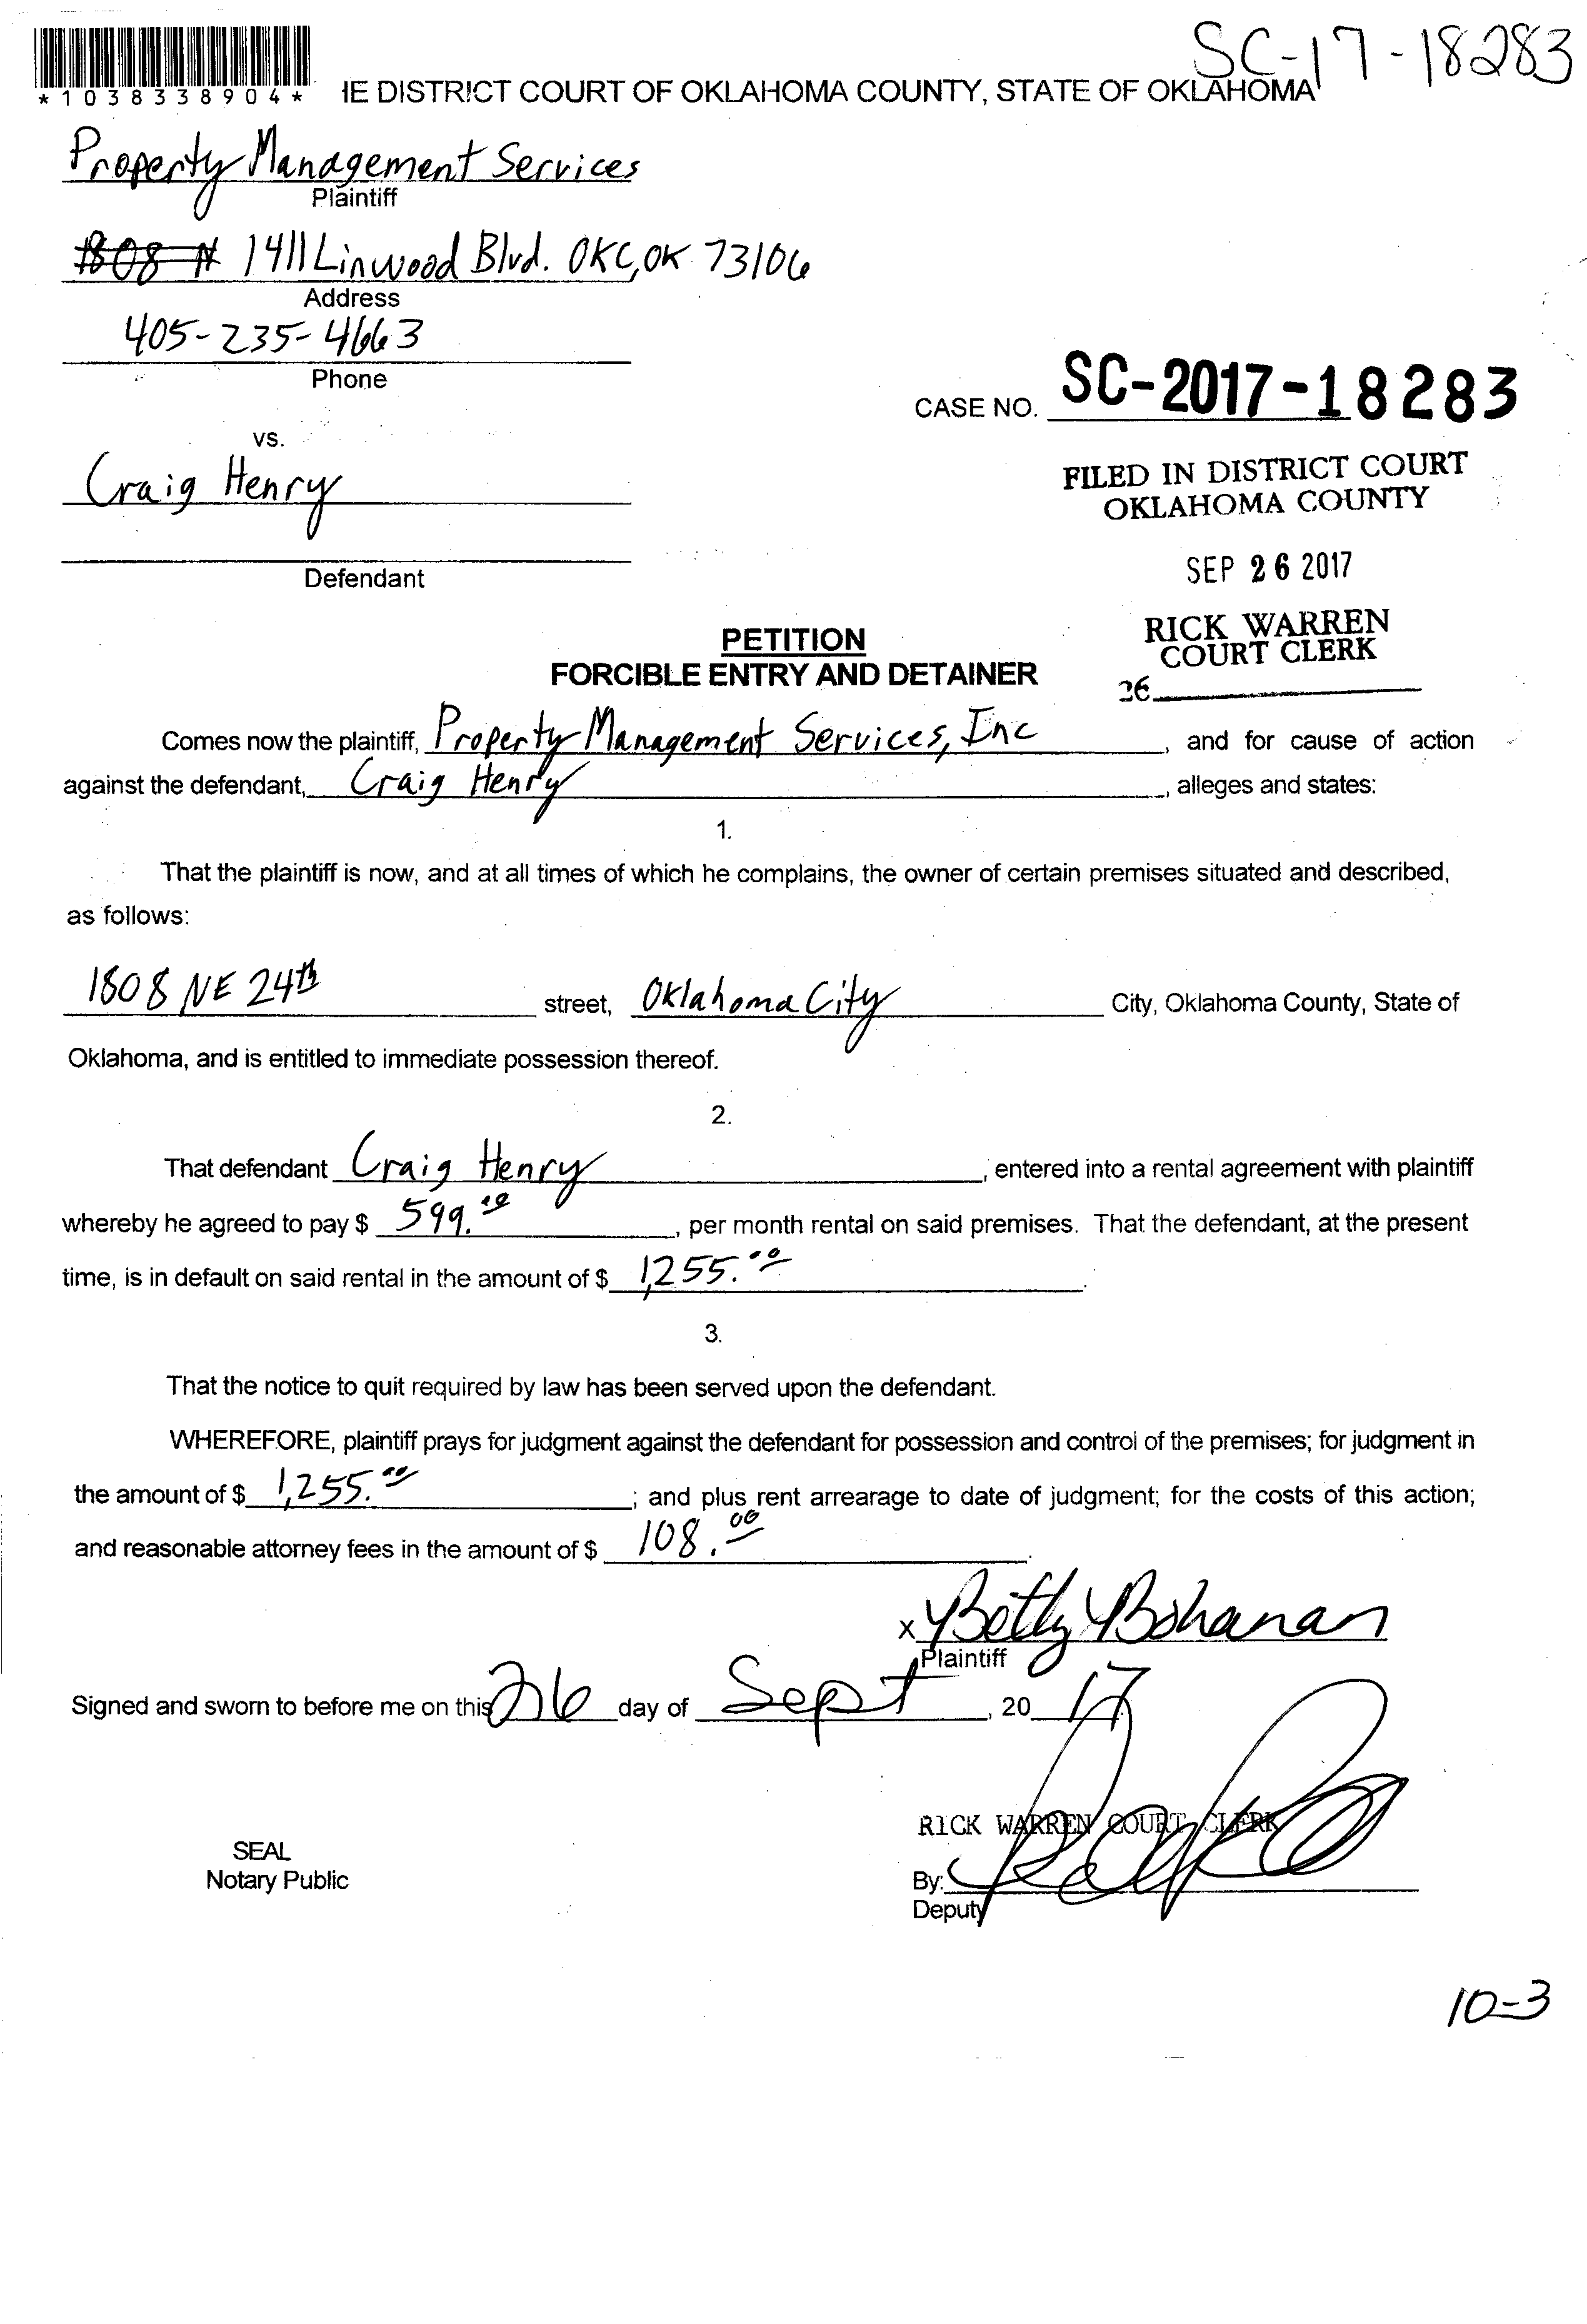 SC-17-18283
*1038338904*
IE DISTRICT COURT OF OKLAHOMA COUNTY, STATE OF OKLAHOMA
Property Management Services
Plaintiff
1808 N 1411 Linwood Blvd. OKC, OK 73106
Address
405-235-4663
Phone
CASE NO. SC-2017-18283
vs.
Craig Henry
FILED IN DISTRICT COURT
OKLAHOMA COUNTY
Defendant
SEP 26 2017
RICK WARREN
COURT CLERK
26
PETITION
FORCIBLE ENTRY AND DETAINER
Comes now the plaintiff, Property Management Services, Inc, and for cause of action
against the defendant, Craig Henry, alleges and states:
1.
That the plaintiff is now, and at all times of which he complains, the owner of certain premises situated and described,
as follows:
1808 NE 24th street, Oklahoma City City, Oklahoma County, State of
Oklahoma, and is entitled to immediate possession thereof.
2.
That defendant Craig Henry, entered into a rental agreement with plaintiff
whereby he agreed to pay $ 599.00, per month rental on said premises. That the defendant, at the present
time, is in default on said rental in the amount of $ 1,255.00.
3.
That the notice to quit required by law has been served upon the defendant.
WHEREFORE, plaintiff prays for judgment against the defendant for possession and control of the premises; for judgment in
the amount of $ 1,255.00; and plus rent arrearage to date of judgment; for the costs of this action;
and reasonable attorney fees in the amount of $ 108.00.
x Betty Bohanan
Plaintiff
Signed and sworn to before me on this 26 day of Sept, 2017
RICK WARREN COURT CLERK
SEAL
Notary Public
By:
Deputy
10-3